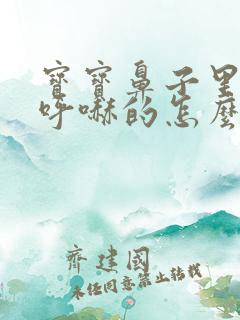 寶寶鼻子里
呼嚇的怎麽
齊建國
未經同意禁止轉載